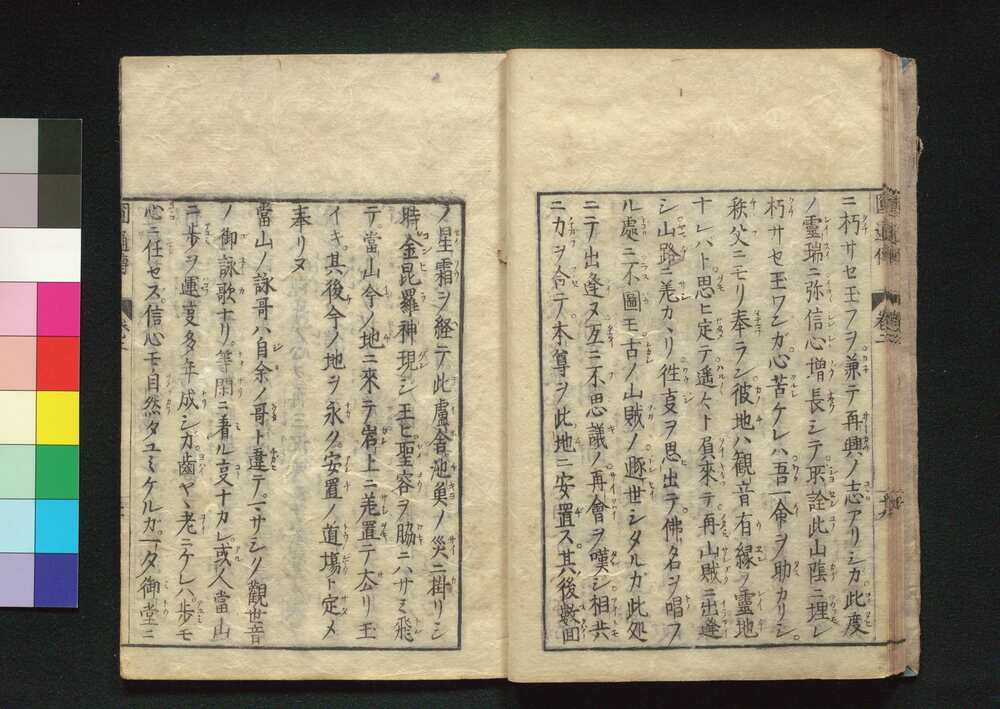 ニ朽サセ玉フヲ兼テ再興ノ志アリシカ此度
ノ靈瑞ニ弥信心増長シテ所詮此山蔭ニ埋レ
朽サセ玉ワンガ心苦ケレハ吾一命ヲ助カリシ
秩父ニモリ奉ラン彼地ハ観音有縁ノ靈地
ナレハト思ヒ定テ遥々ト負來テ再山賊ニ出逢
シ山路ニ差カヽリ徃事ヲ思出テ佛名ヲ唱フ
ル處ニ不圖モ古ノ山賊ノ遯世シタルガ此処
ニテ出逢ヌ互ニ不思議ノ再會ヲ嘆シ相共
ニカヲ合テ本尊ヲ此地ニ安置ス其後數回
ノ星霜ヲ経テ此盧舎池魚ノ災ニ掛リシ
時金昆羅神現シ玉ヒ聖容ヲ脇ニハサミ飛
テ當山今ノ地ニ來テ岩上ニ差置テ去リ玉
イキ其後今ノ地ヲ永ク安置ノ道場ト定メ
奉リヌ
當山ノ詠哥ハ自余ノ哥ト違テマサシク觀世音
ノ御詠歌ナリ等閑ニ看ル事ナカレ或人當山
ニ歩ヲ運事多年成シカ齒ヤヽ老ニケレハ歩モ
心ニ任セス信心モ自然タユミケルカ一夕御堂ニ